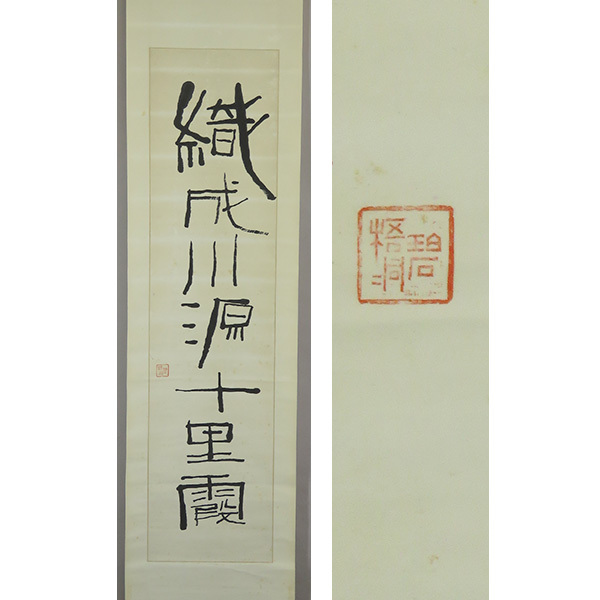 織成川源十里霞
碧梧洞